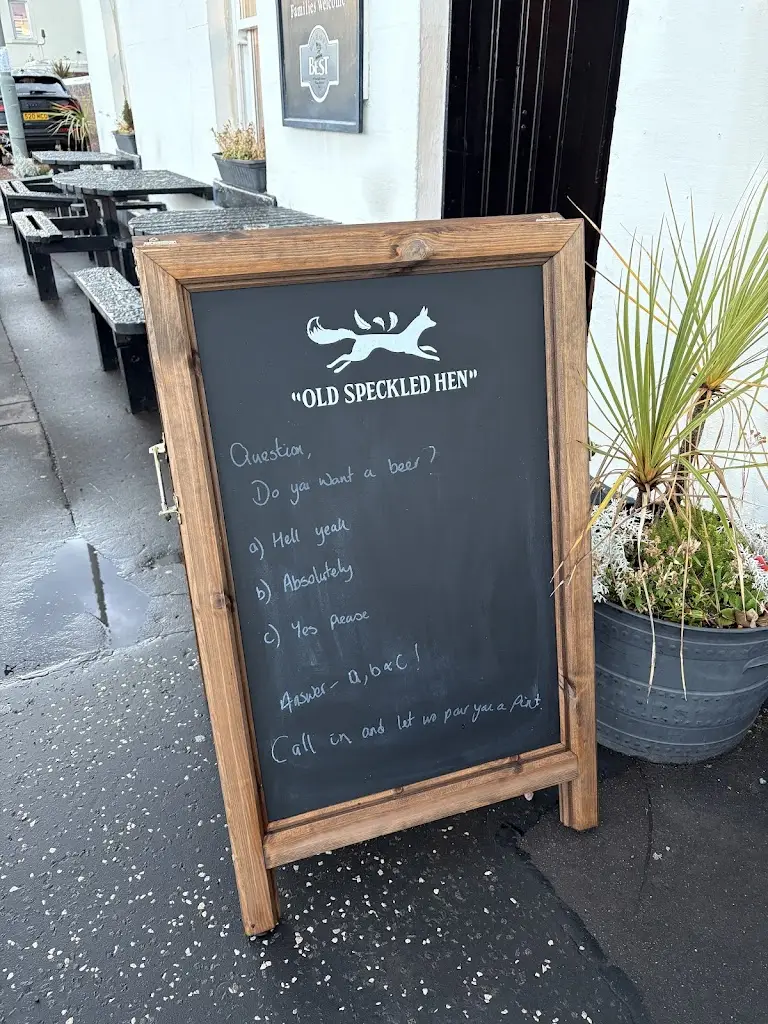 Families Welcome
BEST
S20 MCG
"OLD SPECKLED HEN"
Question,
Do you want a beer?
a) Hell yeah
b) Absolutely
c) Yes please
Answer - a, b & c!
Call in and let us pour you a pint.